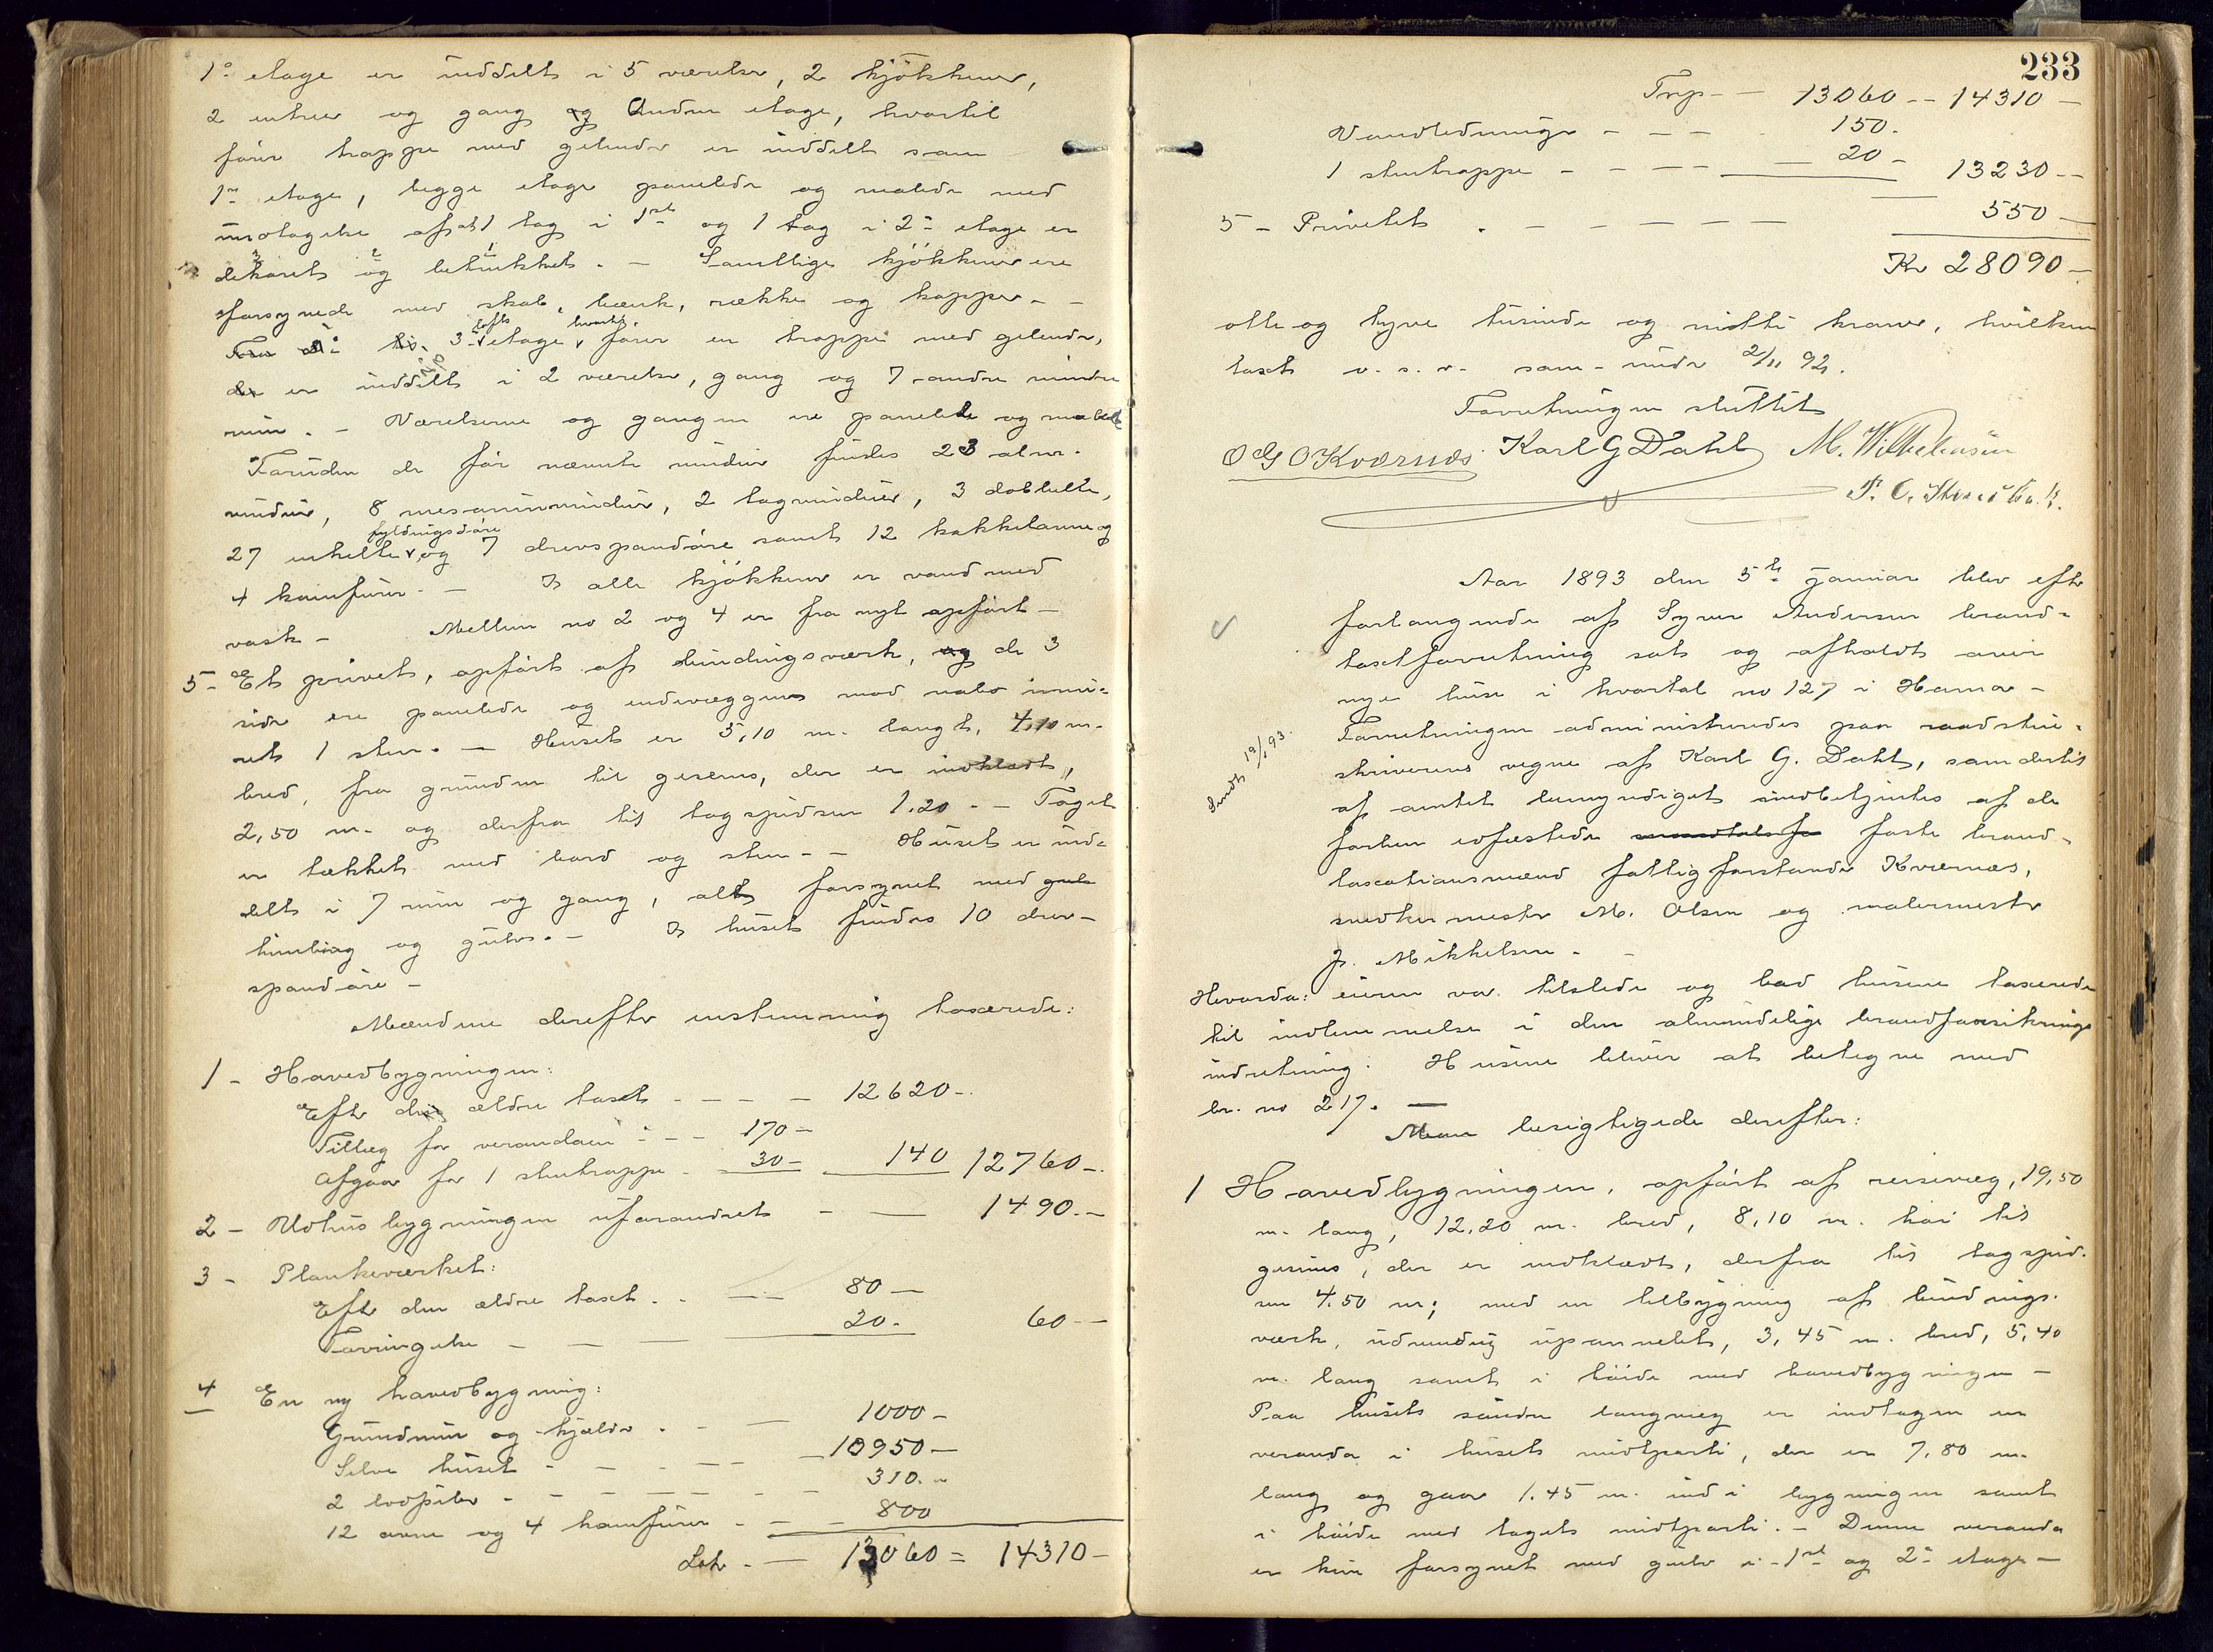 1ᵉ etage er inddelt i 5 værelser, 2 kjökkener,
2 entreer og gang og Anden etage, hvortil
fører trappe med gelender er inddelt som
1ᵉ etage, begge etager panelede og malede med
undtagelse af at 1 tag i 1ste og 1 tag i 2den etage er
dekoret og betrukket. – Samtlige kjökkener ere
forsynede med skab, bænk, rækker og hopper –
Fra 2. til 3. lofts etage, hvortil fører en trappe med gelender,
der er inddelt i 2 værelser, gang og 7 andre mindre
rum. – Værelserne og gangen ere panelede og malede
Foruden de før nævnte vinduer findes 23 alm.
vinduer, 8 mesaninvinduer, 2 tagvinduer, 3 dobbelte,
27 enkelte fyldningsdøre og 7 drevspandøre samt 12 kakkelovne og
4 komfurer. – I alle kjökkener er vand med
vask – Mellem no 2 og 4 er fra nyt opført –
5 – Et privet, opført af bindingsværk, og de 3
sider ere panelede og endevæggen mod nabo inmu-
ret 1 sten. – Huset er 5,10 m. langt, 4,10 m.
bred, fra grunden til gesems, der er indklædt,
2,50 m. og derfra til tagspidsen 1.20 – – Taget
er tækket med bord og sten – – Huset er ind-
delt i 7 rum og gang, alt forsynet med
himling og gulv. – I huset findes 10 drev-
spandøre –
Mændene derefter enstemmig taxerede:
1 – Hovedbygningen:
Efter den ældre taxt – – – – 12620 –
Tillæg for verandaen – – – 170 –
Afgaar for 1 stentrappe – 30 – 140 12760 –
2 – Udhusbygningen uforandret – — 1490. –
3 – Plankeværket:
Efter den ældre taxt . . – — 80 –
Forringelse – — — 20. 60 –
4 En ny hovedbygning:
Grundmur og kjælder . – — 1000 –
Selve huset – – – – — 10950 –
2 brdpiber – – – – – – 310. –
12 ovne og 4 komfurer – – – 800
Lat. – — 13060 = 14310 –
233
Trsp – — 13060 – – 14310 –
Vandledninger – – – 150.
1 stentrappe – – – – 20 – 13230 –
5 – Privetet . – – – – — 550 –
Kr 28090 –
otte og tyve tusinde og nitti kroner, hvilken
taxt o. s. v. som under 2/11 92.
Forretningen sluttet
O G O Kværnæs Karl G Dahl M. Wilhelmsen
Aar 1893 den 5te januar blev efter
forlangende af Syver Andersen brand-
taxtforretning sat og afholdt over
nye huse i kvartal no 127 i Hamar –
Forretningen administreredes paa raadstue-
skriverens vegne af Karl G. Dahl, som dertil
af amtet bemyndiget medbetjentes af de
forhen edfæstede faste brand-
taxationsmænd fattigforstander Kværnæs,
snedkermester M. Olsen og malermester
J. Mikkelsen. –
Sendt 19/1 93.
Hvorda: eieren var tilstede og bad husene taxerede
til indlemmelse i den almindelige brandforsikrings
indretning. Husene bliver at betegne med
br. no 217. —
Man besigtigede derefter:
1 Hovedbygningen, opført af reisevæg, 19,50
m. lang, 12,20 m. bred, 8,10 m. høi til
gesims, der er indklædt, derfra til tagspid-
sen 4.50 m; med en tilbygning af bindings-
værk, udvendig upannelet, 3,45 m. bred, 5,40
m. lang samt i høide med hovedbygningen –
Paa husets søndre langvæg er indtagen en
veranda i husets midtparti, der er 7,80 m.
lang og gaar 1.45 m. ind i bygningen samt
i høide med tagets midtparti. – Denne veranda
er kun forsynet med gulv i 1ste og 2den etage –